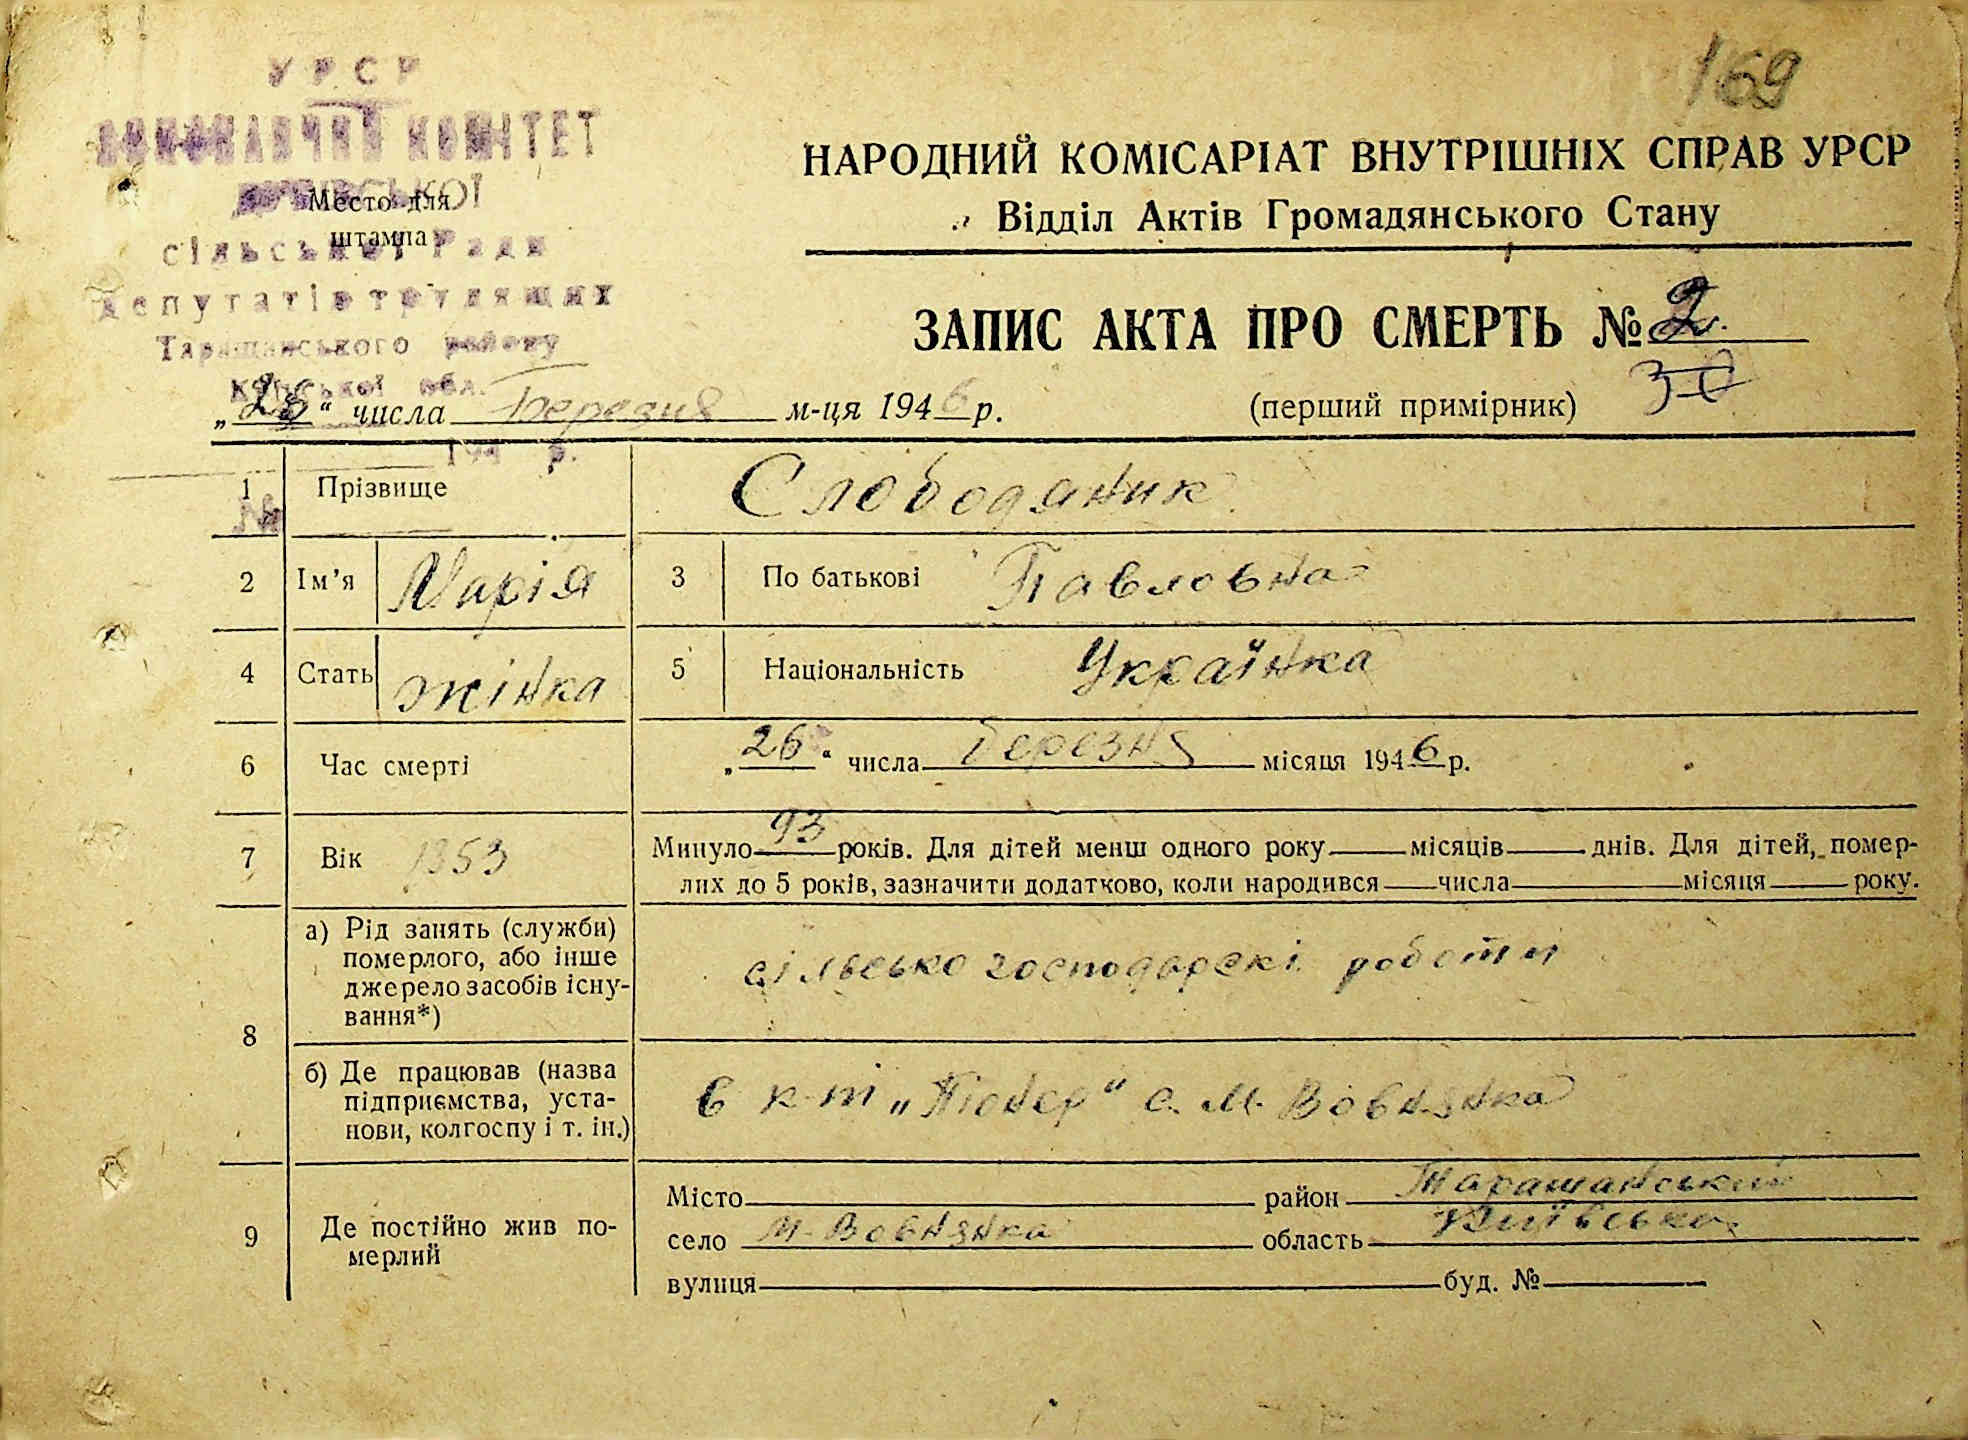 169
УРСР
ВИКОНАВЧИЙ КОМІТЕТ
Место для
штампа
сільської Ради
депутатів трудящих
Таращанського району
Київської обл.
194 р.
№
НАРОДНИЙ КОМІСАРІАТ ВНУТРІШНІХ СПРАВ УРСР
Відділ Актів Громадянського Стану
ЗАПИС АКТА ПРО СМЕРТЬ № 2
30
„26“ числа Березня м-ця 1946 р. (перший примірник)
1 Прізвище Слободяник
2 Ім’я Марія 3 По батькові Павловна
4 Стать жінка 5 Національність Українка
6 Час смерті „26“ числа Березня місяця 1946 р.
7 Вік 1853 Минуло 93 років. Для дітей менш одного року місяців днів. Для дітей, помер-
лих до 5 років, зазначити додатково, коли народився числа місяця року.
8 а) Рід занять (служби)
померлого, або інше
джерело засобів існу-
вання*)
сільсько господарскі роботи
б) Де працював (назва
підприємства, уста-
нови, колгоспу і т. ін.)
в к-т „Піонер“ с. М. Вовнянка
9 Де постійно жив по-
мерлий
Місто район Таращанський
село М-Вовнянка область Київська
вулиця буд. №